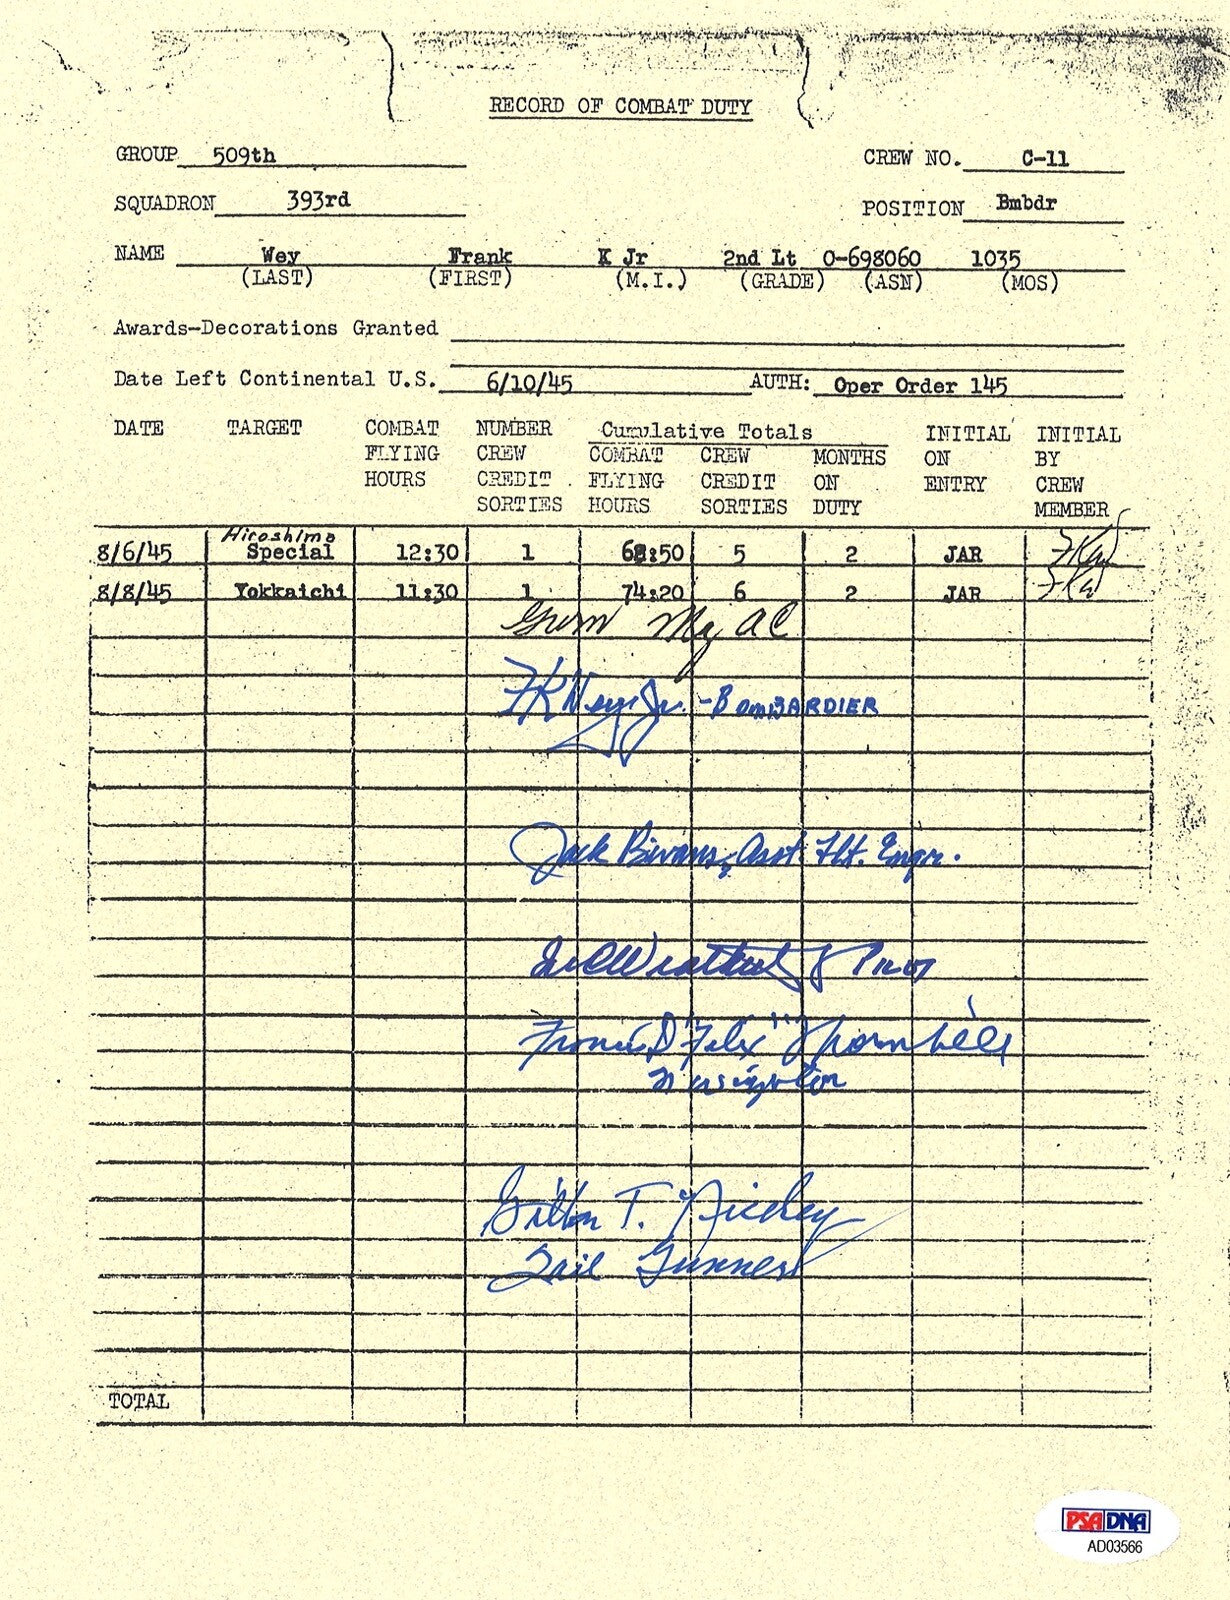 RECORD OF COMBAT DUTY
GROUP 509th CREW NO. C-11
SQUADRON 393rd POSITION Bmbdr
NAME Wey Frank K Jr 2nd Lt O-698060 1035
(LAST) (FIRST) (M.I.) (GRADE) (ASN) (MOS)
Awards-Decorations Granted
Date Left Continental U.S. 6/10/45 AUTH: Oper Order 145
DATE TARGET COMBAT FLYING HOURS NUMBER CREW CREDIT SORTIES Cumulative Totals COMBAT FLYING HOURS CREW CREDIT SORTIES MONTHS ON DUTY INITIAL ON ENTRY INITIAL BY CREW MEMBER
Hiroshima
8/6/45 Special 12:30 1 62:50 5 2 JAR
8/8/45 Yokkaichi 11:30 1 74:20 6 2 JAR
AC
FKWey Jr. - BOMBARDIER
Jack Bivans, Asst. Flt. Engr.
PILOT
Francis D "Felix" Thornhill
Navigator
Gillon T. Nicely
Tail Gunner
TOTAL
PSA DNA
AD03566